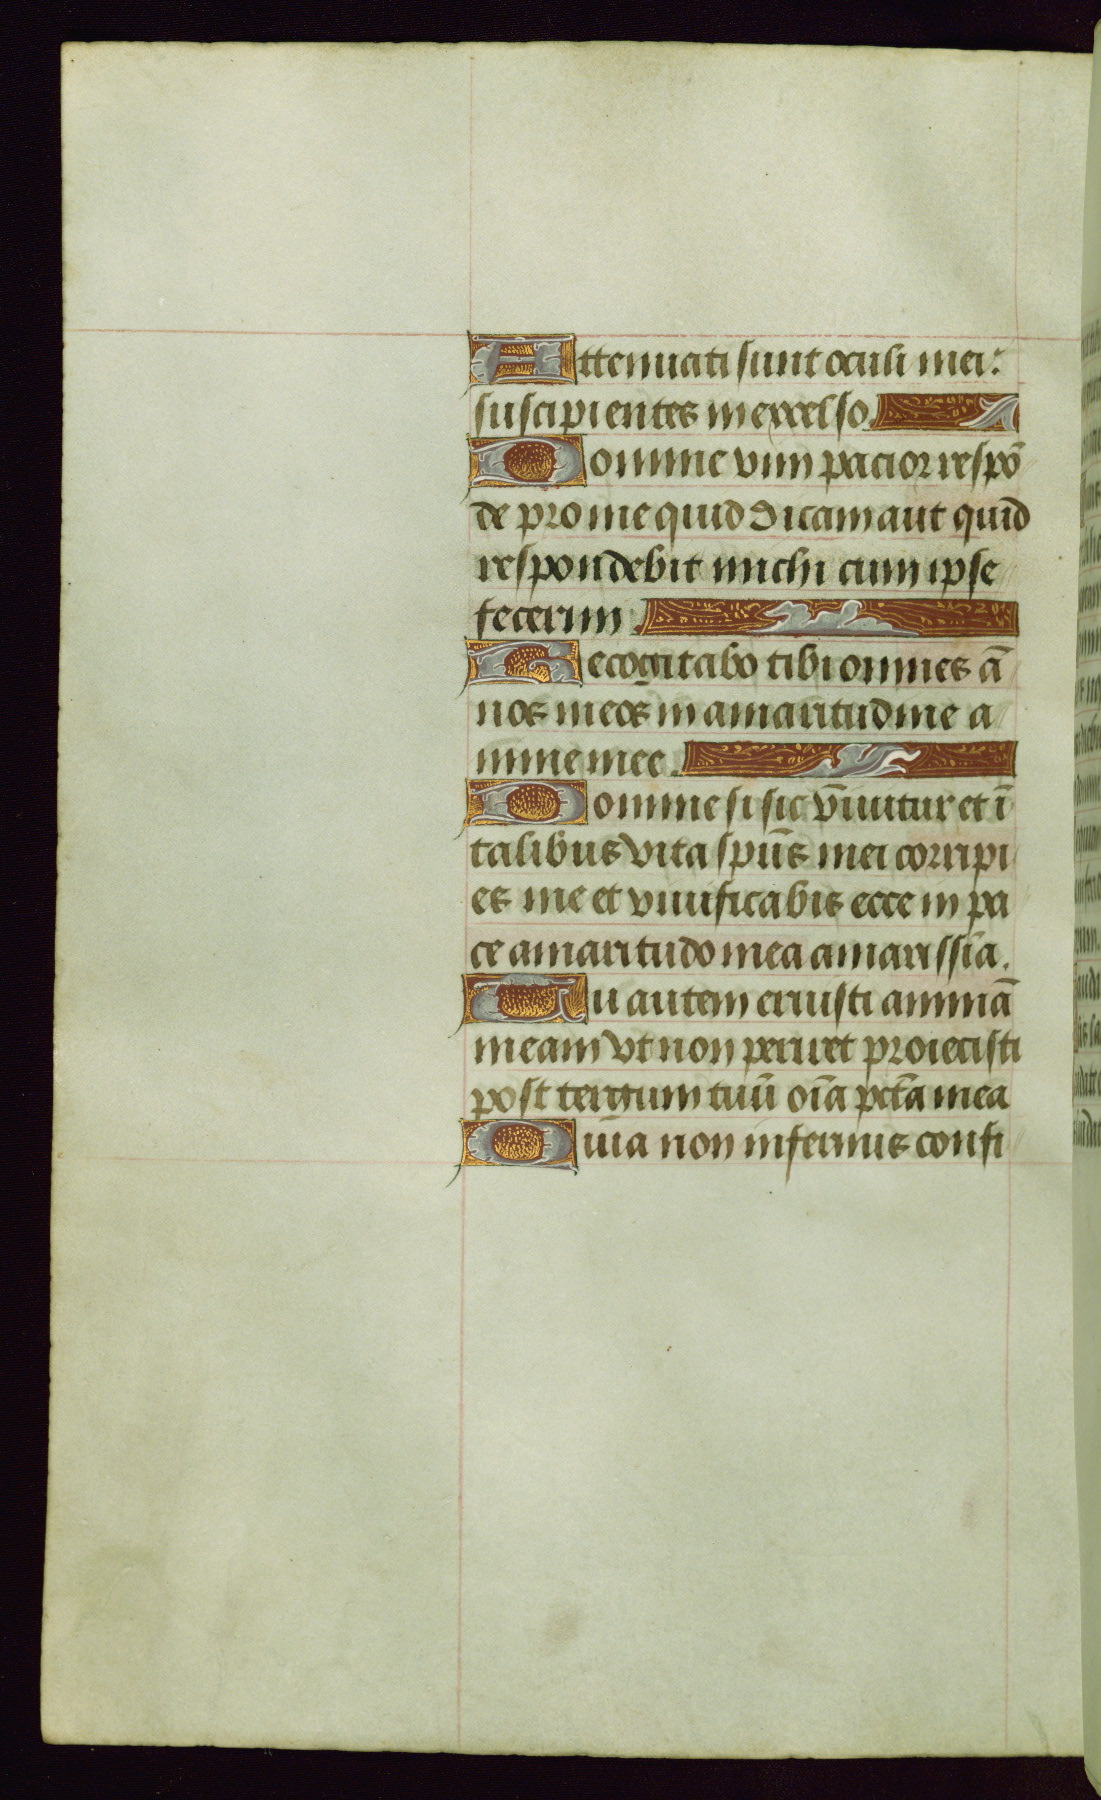 Attenuati sunt oculi mei:
suscipientes in excelso.
Domine vim pacior respõ
de pro me quid dicam aut quid
respondebit michi cum ipse
fecerim.
Recogitabo tibi omnes ã
nos meos in amaritudine a
nime mee.
Domine si sic vĩuitur et ĩ
talibus vita spũs mei corripi
es me et viuificabis ecce in pa
ce amaritudo mea amarissĩa.
Tu autem eruisti animã
meam vt non periret proiecisti
post tergum tuũ oĩa pctã mea
Quia non infernus confi